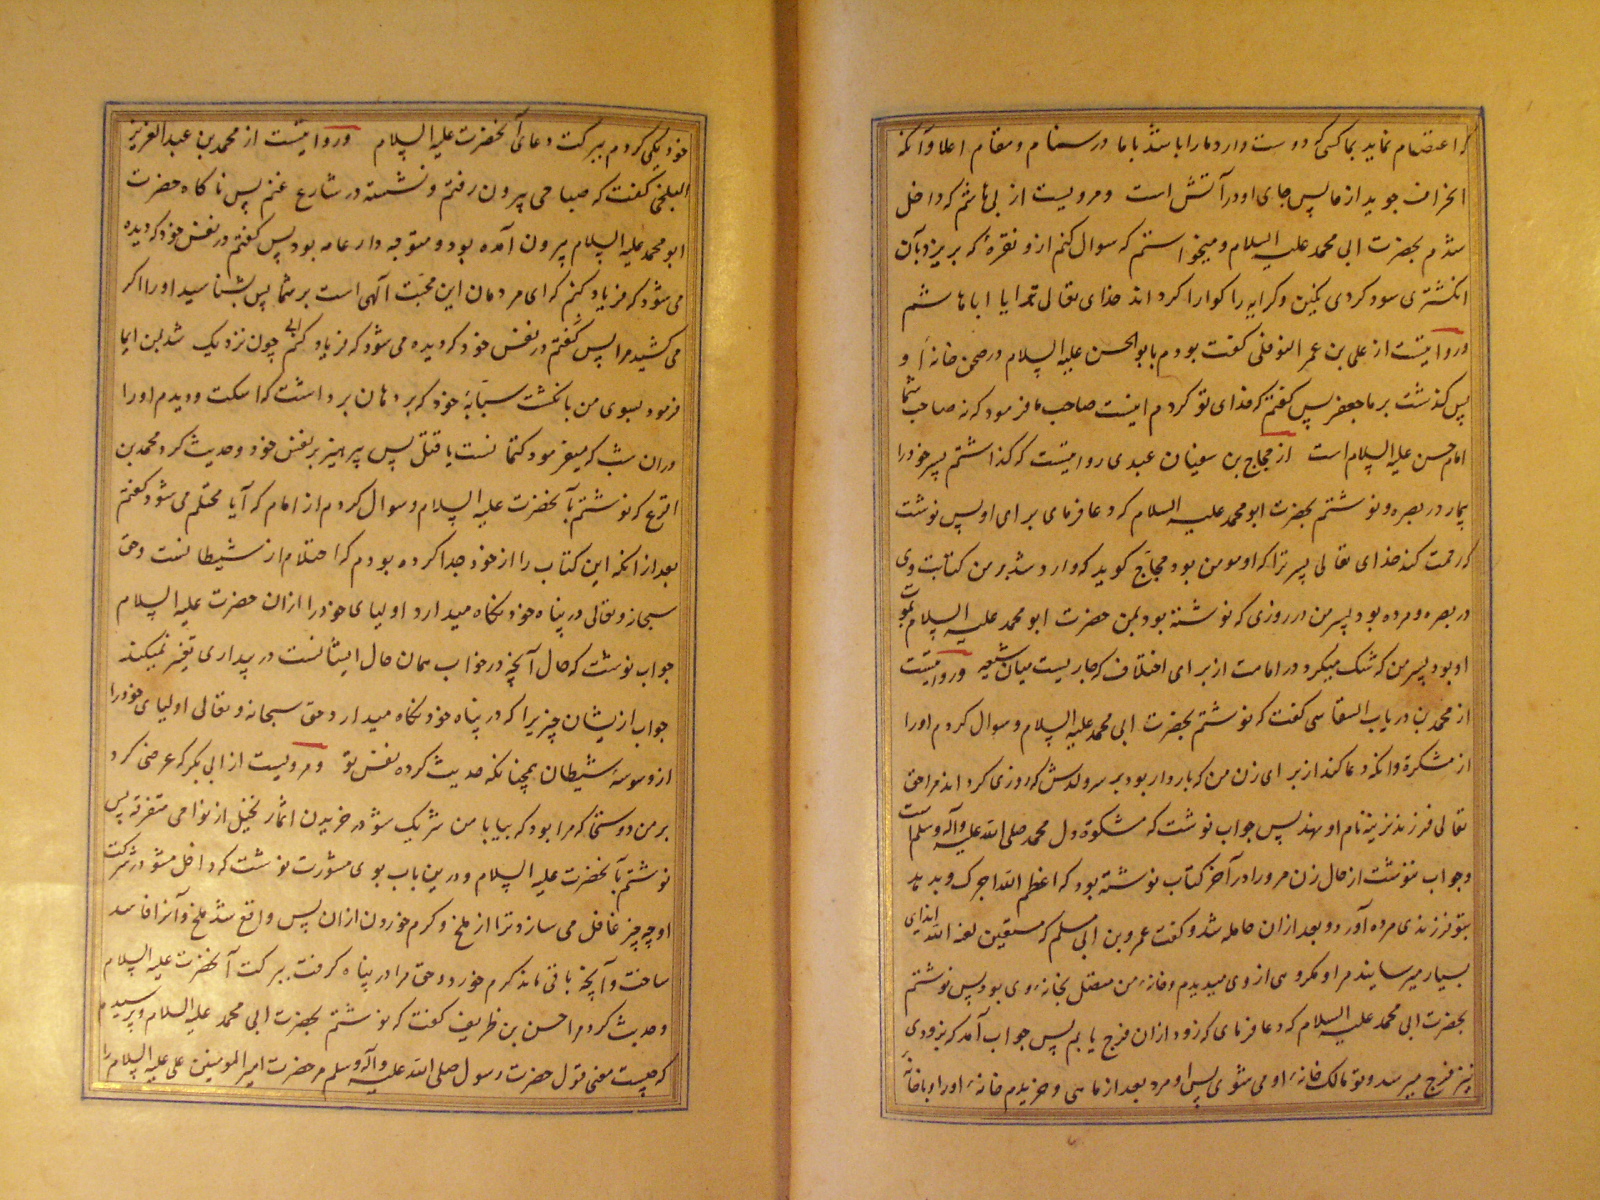 که اعتصام نماید بما کسی که دوست دارد ما را باشد با ما در سنام و مقام اعلا و آنکه
انحراف جوید از ما پس جای او در آتش است ومرویست از بی هاشم که داخل
شدم بحضرت ابی محمد علیه السلام و میخواستم که سوال کنم ازو نقره که بریزد بآن
انکشتری سود کردی نکین و کرایه را کوارا کرداند خدای تعالی ترا یا ابا هاشم
وروایتست از علی بن عمر النوفلی کفت بودم با بو الحسن علیه السلام در صحن خانه او
پس کذشت بر ما جعفر پس کفتم که فدای تو کردم اینست صاحب ما فرمود که نه صاحب شما
امام حسن علیه السلام است از حجاج بن سفیان عبدی روایتست که کذاشتم پسر خود را
بیمار در بصره و نوشتم بحضرت ابو محمد علیه السلام که دعا فرمای برای او پس نوشت
که رحمت کند خدای تعالی پسر ترا که او مومن بود حجاج کوید که وارد شد بر من کتابت وی
در بصره و مرده بود پسر من در روزی که نوشته بود بمن حضرت ابو محمد علیه السلام بموت
او بود پسر من که شک میکرد در امامت از برای اختلاف که جاریست میان شیعه وروایتست
از محمد بن دریاب السقاسی کفت که نوشتم بحضرت ابی محمد علیه السلام و سوال کردم او را
از مشکوة و آنکه دعا کند از برای زن من که باردار بود بر سر ولدش که روزی کرداند مرا حق
تعالی فرزند نرینه نام او نهند پس جواب نوشت که مشکوة دل محمد صلی الله علیه وآله وسلم است
وجواب ننوشت از حال زن مرو را در آخر کتاب نوشته بود که اعظم الله اجرک و بدید
بتو فرزندی مرده آورد و بعد از ان حامله شد و کفت عمرو بن ابی مسلم که مستعین لعنه الله ایذای
بسیار میرسانید مرا و مکروهی از وی میدیدم و خانه من متصل بخانه وی بود پس نوشتم
بحضرت ابی محمد علیه السلام که دعا فرمای که زود از ان فرج یابم پس جواب آمد که بزودی
نیز فرج میرسد و تو مالک خانه او می شوی پس او مرد بعد از ماهی و خریدم خانه او را و با خانه
خود یکی کردم ببرکت دعای آنحضرت علیه السلام وروایتست از محمد بن عبد العزیز
البلخی کفت که صباحی بیرون رفتم و نشسته در شارع غنم پس ناکاه حضرت
ابو محمد علیه السلام بیرون آمده بود و متوجه دار عامه بود پس کفتم در نفس خود که دیده
می شود که فریاد کنم که ای مردمان این حجت آلهی است بر شما پس بشناسید او را اکر
می کشید مرا پس کفتم در نفس خود که دیده می شود که فریاد کنم چون نزدیک شد بمن ایما
فرمود بسوی من بانکشت سبابه خود که بر دهان برداشت که اسکت و دیدم او را
در ان شب که میفرمود کتمانست یا قتل پس پرهیز بر نفس خود وحدیث کرد محمد بن
اقرع که نوشتم بآنحضرت علیه السلام و سوال کردم از امام که آیا محتلم می شود کفتم
بعد از انکه این کتاب را از خود جدا کرده بودم که احتلام از شیطانست وحق
سبحانه وتعالی در پناه خود نکاه میدارد اولیای خود را ازان حضرت علیه السلام
جواب نوشت که حال آنچه در خواب همان حال ایشانست در بیداری تغییر نمیکند
جواب ازیشان چیزی را که در پناه خود نکاه میدارد وحق سبحانه وتعالی اولیای خود را
از وسوسه شیطان همچنانکه حدیث کرده نفس تو ومرویست از ابی بکر که عرض کرد
بر من دوستی که مرا بود که بیا با من شریک شو در خریدن اثمار نخیل از نواحی متفرقه پس
نوشتم بآنحضرت علیه السلام و درین باب بوی مشورت نوشت که داخل مشو در شرکت
او چه چیز غافل می سازد ترا از ملخ و کرم خوردن ازان پس واقع شد ملخ و آنرا فاسد
ساخت و آنچه باقی ماند کرم خورد وحق مرا در پناه کرفت ببرکت آنحضرت علیه السلام
وحدیث کرد مرا حسن بن ظریف کفت که نوشتم بحضرت ابی محمد علیه السلام و پرسیدم
که چیست معنی قول حضرت رسول صلی الله علیه وآله وسلم مر حضرت امیر المومنین علی علیه السلام را